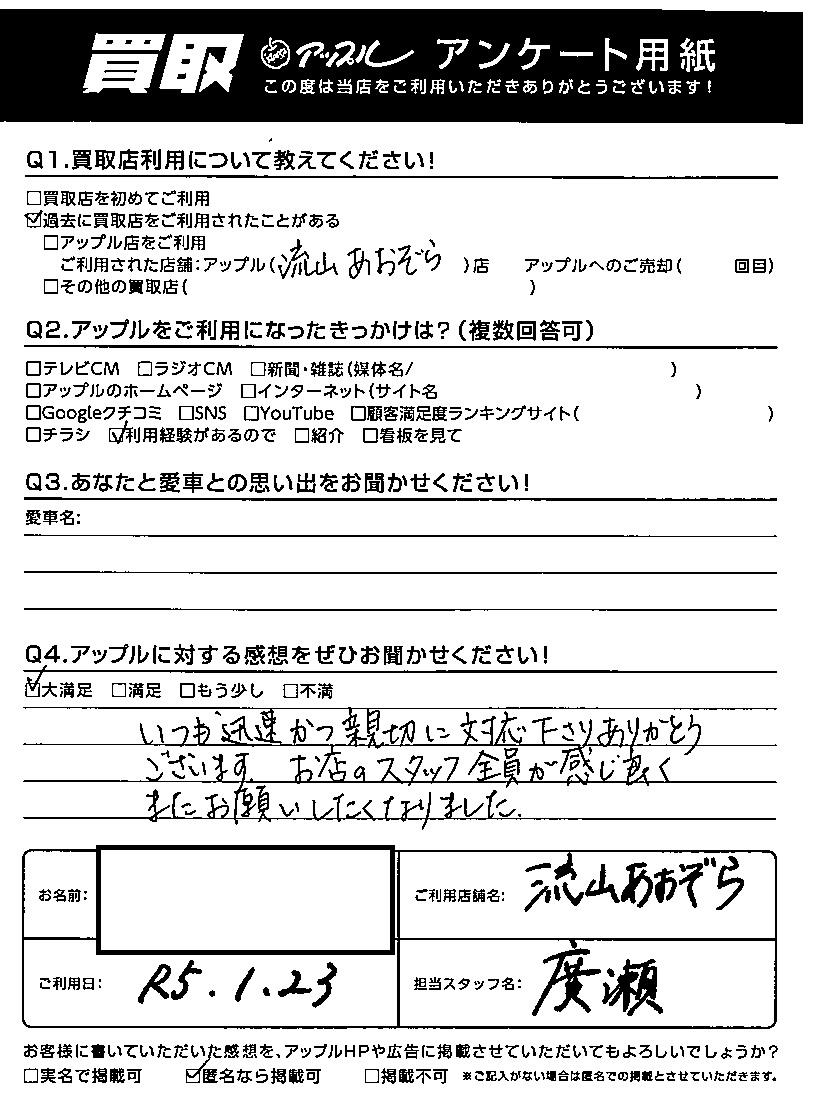 買取 アップル アンケート用紙
この度は当店をご利用いただきありがとうございます!
Q1.買取店利用について教えてください!
□買取店を初めてご利用
☑過去に買取店をご利用されたことがある
□アップル店をご利用
ご利用された店舗:アップル(流山あおぞら)店 アップルへのご売却( 回目)
□その他の買取店( )
Q2.アップルをご利用になったきっかけは?(複数回答可)
□テレビCM □ラジオCM □新聞・雑誌(媒体名/ )
□アップルのホームページ □インターネット(サイト名 )
□Googleクチコミ □SNS □YouTube □顧客満足度ランキングサイト( )
□チラシ ☑利用経験があるので □紹介 □看板を見て
Q3.あなたと愛車との思い出をお聞かせください!
愛車名:
Q4.アップルに対する感想をぜひお聞かせください!
☑大満足 □満足 □もう少し □不満
いつも迅速かつ親切に対応下さりありがとう
ございます。お店のスタッフ全員が感じ良く
またお願いしたくなりました。
お名前: ご利用店舗名: 流山あおぞら
ご利用日: R5.1.23 担当スタッフ名: 廣瀬
お客様に書いていただいた感想を、アップルHPや広告に掲載させていただいてもよろしいでしょうか?
□実名で掲載可 ☑匿名なら掲載可 □掲載不可 ※ご記入がない場合は匿名での掲載とさせていただきます。